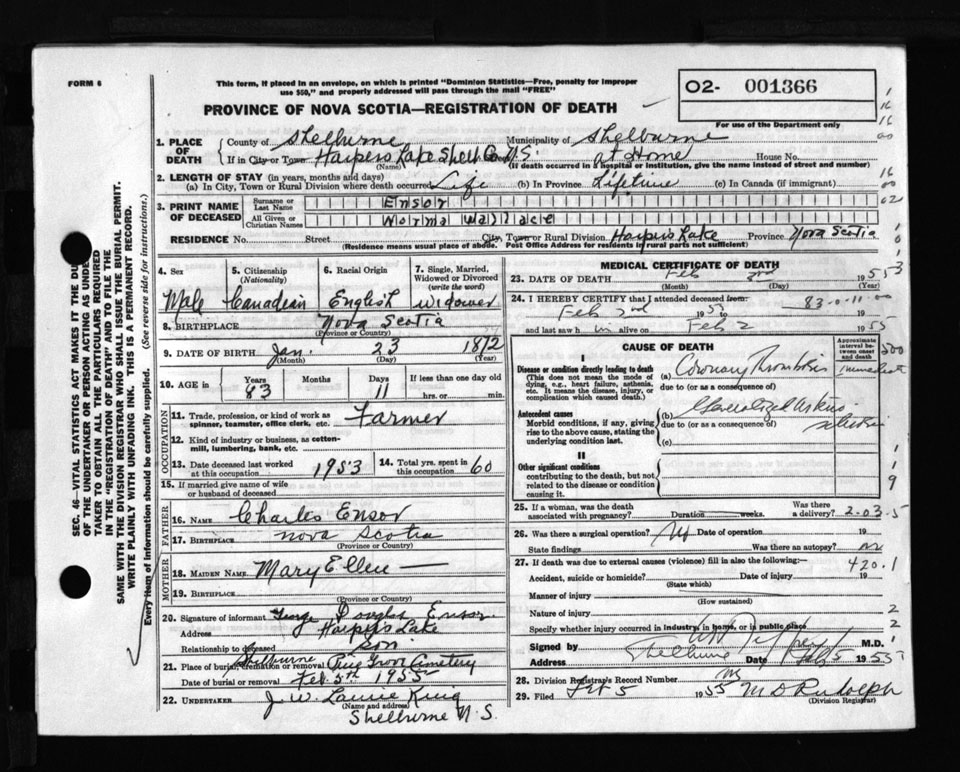 FORM 6
This form, if placed in an envelope, on which is printed "Dominion Statistics—Free, penalty for improper
use $50," and properly addressed will pass through the mail "FREE"
PROVINCE OF NOVA SCOTIA—REGISTRATION OF DEATH
O2- 001366
For use of the Department only
SEC. 46—VITAL STATISTICS ACT MAKES IT THE DU
OF THE UNDERTAKER OR PERSON ACTING AS UNDE
TAKER TO OBTAIN ALL THE PARTICULARS REQUIRED
IN THE "REGISTRATION OF DEATH" AND TO FILE THE
SAME WITH THE DIVISION REGISTRAR WHO SHALL ISSUE THE BURIAL PERMIT.
WRITE PLAINLY WITH UNFADING INK. THIS IS A PERMANENT RECORD.
Every item of information should be carefully supplied. (See reverse side for instructions.)
1. PLACE OF DEATH
County of Shelburne Municipality of Shelburne
If in City or Town Harpers Lake Shelb Co N.S. at Home House No.
(Name) (If death occurred in hospital or institution, give the name instead of street and number)
2. LENGTH OF STAY (in years, months and days)
(a) In City, Town or Rural Division where death occurred Life (b) In Province Lifetime (c) In Canada (if immigrant)
3. PRINT NAME OF DECEASED
Surname or Last Name Ensor
All Given or Christian Names Norman Wallace
RESIDENCE No. Street City, Town or Rural Division Harpers Lake Province Nova Scotia
(Residence means usual place of abode. Post Office Address for residents in rural parts not sufficient)
4. Sex 5. Citizenship (Nationality) 6. Racial Origin 7. Single, Married, Widowed or Divorced (write the word)
Male Canadian English Widower
8. BIRTHPLACE Nova Scotia
(Province or Country)
9. DATE OF BIRTH Jan. 23 1872
(Month) (Day) (Year)
10. AGE in Years Months Days If less than one day old
83 11 hrs. or min.
OCCUPATION
11. Trade, profession, or kind of work as spinner, teamster, office clerk, etc. Farmer
12. Kind of industry or business, as cotton-mill, lumbering, bank, etc.
13. Date deceased last worked at this occupation 1953 14. Total yrs. spent in this occupation 60
15. If married give name of wife or husband of deceased
FATHER
16. NAME Charles Ensor
17. BIRTHPLACE Nova Scotia
(Province or Country)
MOTHER
18. MAIDEN NAME Mary Ellen —
19. BIRTHPLACE
(Province or Country)
20. Signature of informant George Douglas Ensor
Address Harpers Lake
Relationship to deceased Son
21. Place of burial, cremation or removal Shelburne Pine Grove Cemetery
Date of burial or removal Feb. 5th 1955
22. UNDERTAKER J. W. Laurie King
(Name and address)
Shelburne N.S.
MEDICAL CERTIFICATE OF DEATH
23. DATE OF DEATH Feb 3rd 1955
(Month) (Day)
24. I HEREBY CERTIFY that I attended deceased from:
83-0-11-00
Feb 2nd 1953 to 19
and last saw h im alive on Feb 2 1955
CAUSE OF DEATH
Approximate interval between onset and death
I
Disease or condition directly leading to death
(This does not mean the mode of dying, e.g., heart failure, asthenia, etc. It means the disease, injury, or complication which caused death.)
(a) Coronary Thrombosis immediate
due to (or as a consequence of)
Antecedent causes
Morbid conditions, if any, giving rise to the above cause, stating the underlying condition last.
(b) Generalized Arterio sclerosis
due to (or as a consequence of)
(c)
II
Other significant conditions
contributing to the death, but not related to the disease or condition causing it.
25. If a woman, was the death associated with pregnancy? Duration weeks. Was there a delivery? 2-03-5
26. Was there a surgical operation? No Date of operation 19
State findings Was there an autopsy? no
27. If death was due to external causes (violence) fill in also the following:—
420.1
Accident, suicide or homicide? Date of injury 19
(State which)
Manner of injury
(How sustained)
Nature of injury
Specify whether injury occurred in industry, in home, or in public place
Signed by M.D.
Address Shelburne Date Feb 5 1955
28. Division Registrar's Record Number
29. Filed Feb 5 1955 M D Rudolph
(Division Registrar)